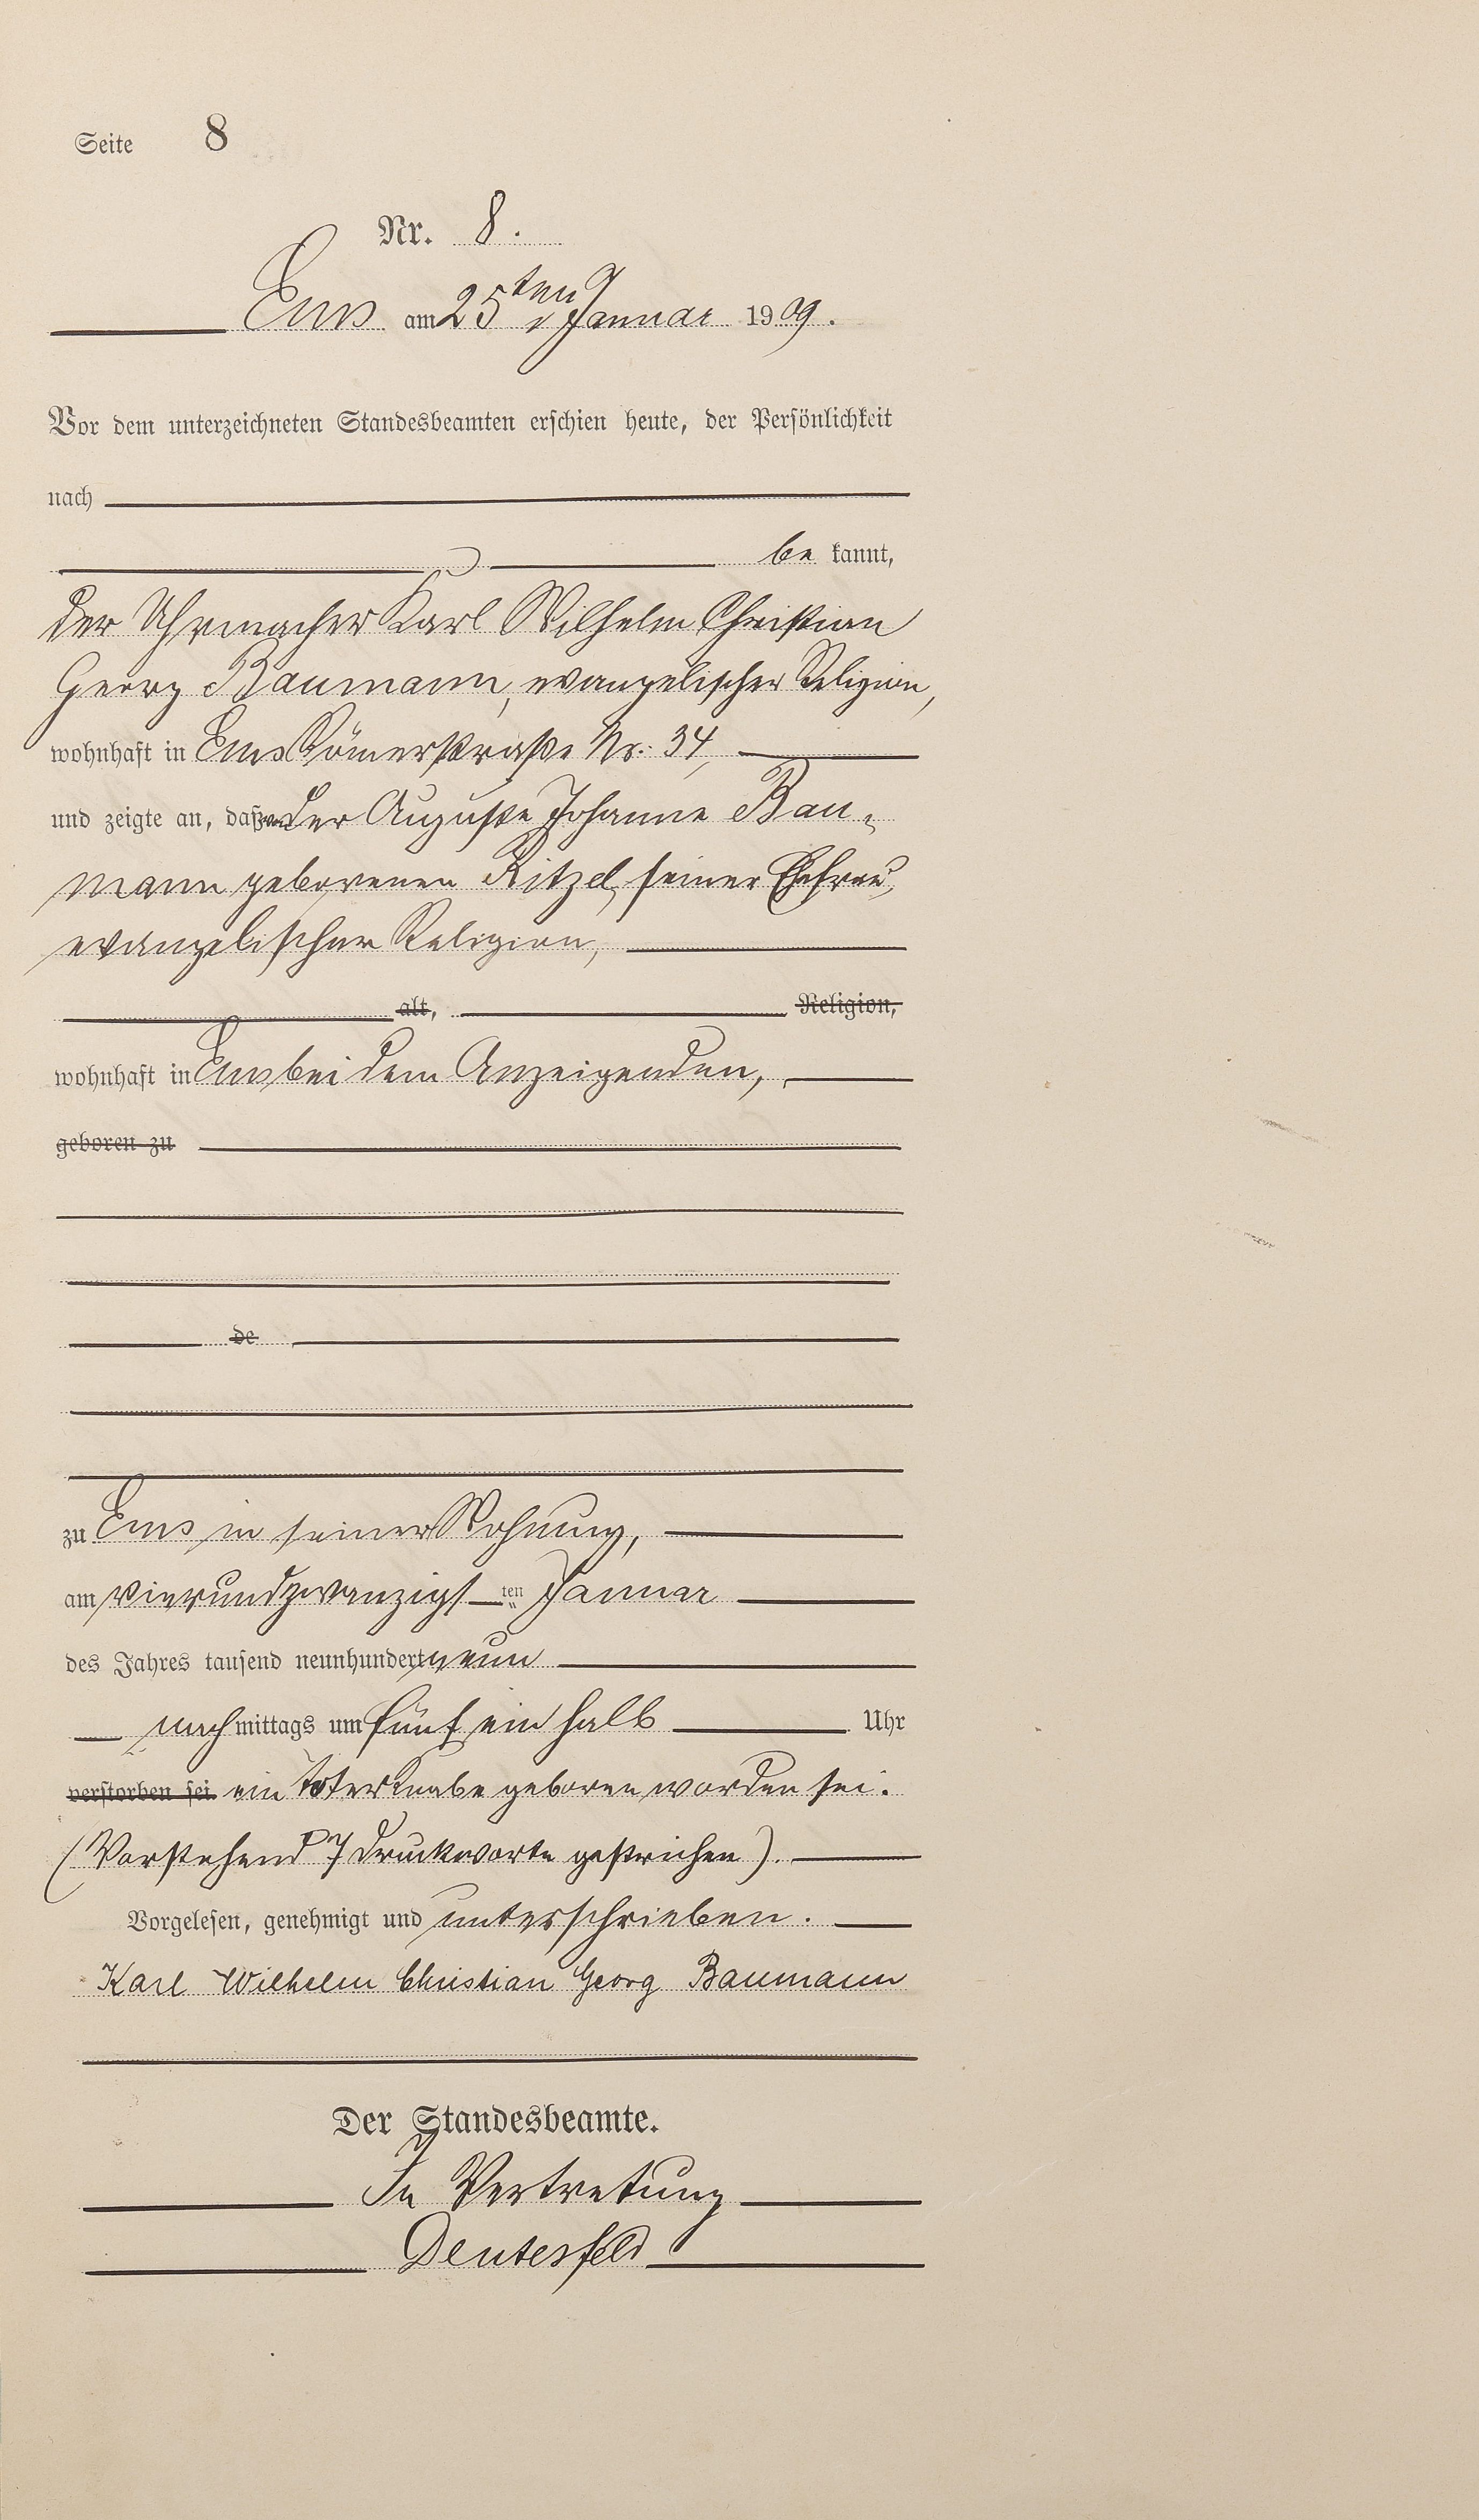 Seite 8
Nr. 8.
Ems am 25ten Januar 1909.
Vor dem unterzeichneten Standesbeamten erschien heute, der Persönlichkeit
nach
be kannt,
der Uhrmacher Karl Wilhelm Christian
Georg Baumann, evangelischer Religion,
wohnhaft in Ems Römerstraße Nr. 34,
und zeigte an, daß von der Auguste Johanne Bau-
mann geborenen Ritzel, seiner Ehefrau,
evangelischer Religion,
alt, Religion,
wohnhaft in Ems bei dem Anzeigenden,
geboren zu
de
zu Ems in seiner Wohnung,
am vierundzwanzigst ten Januar
des Jahres tausend neunhundert neun
nach mittags um fünf ein halb Uhr
verstorben sei ein toter Knabe geboren worden sei.
(Vorstehend 7 Druckworte gestrichen).
Vorgelesen, genehmigt und unterschrieben.
Karl Wilhelm Christian Georg Baumann
Der Standesbeamte.
In Vertretung